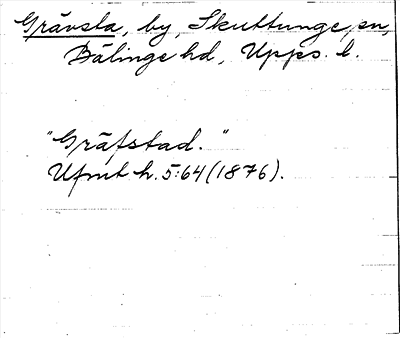 Grävsta, by, Skuttunge sn,
Bälinge hd, Upps. l.
"Gräfstad."
Ufmt h. 5:64 (1876).